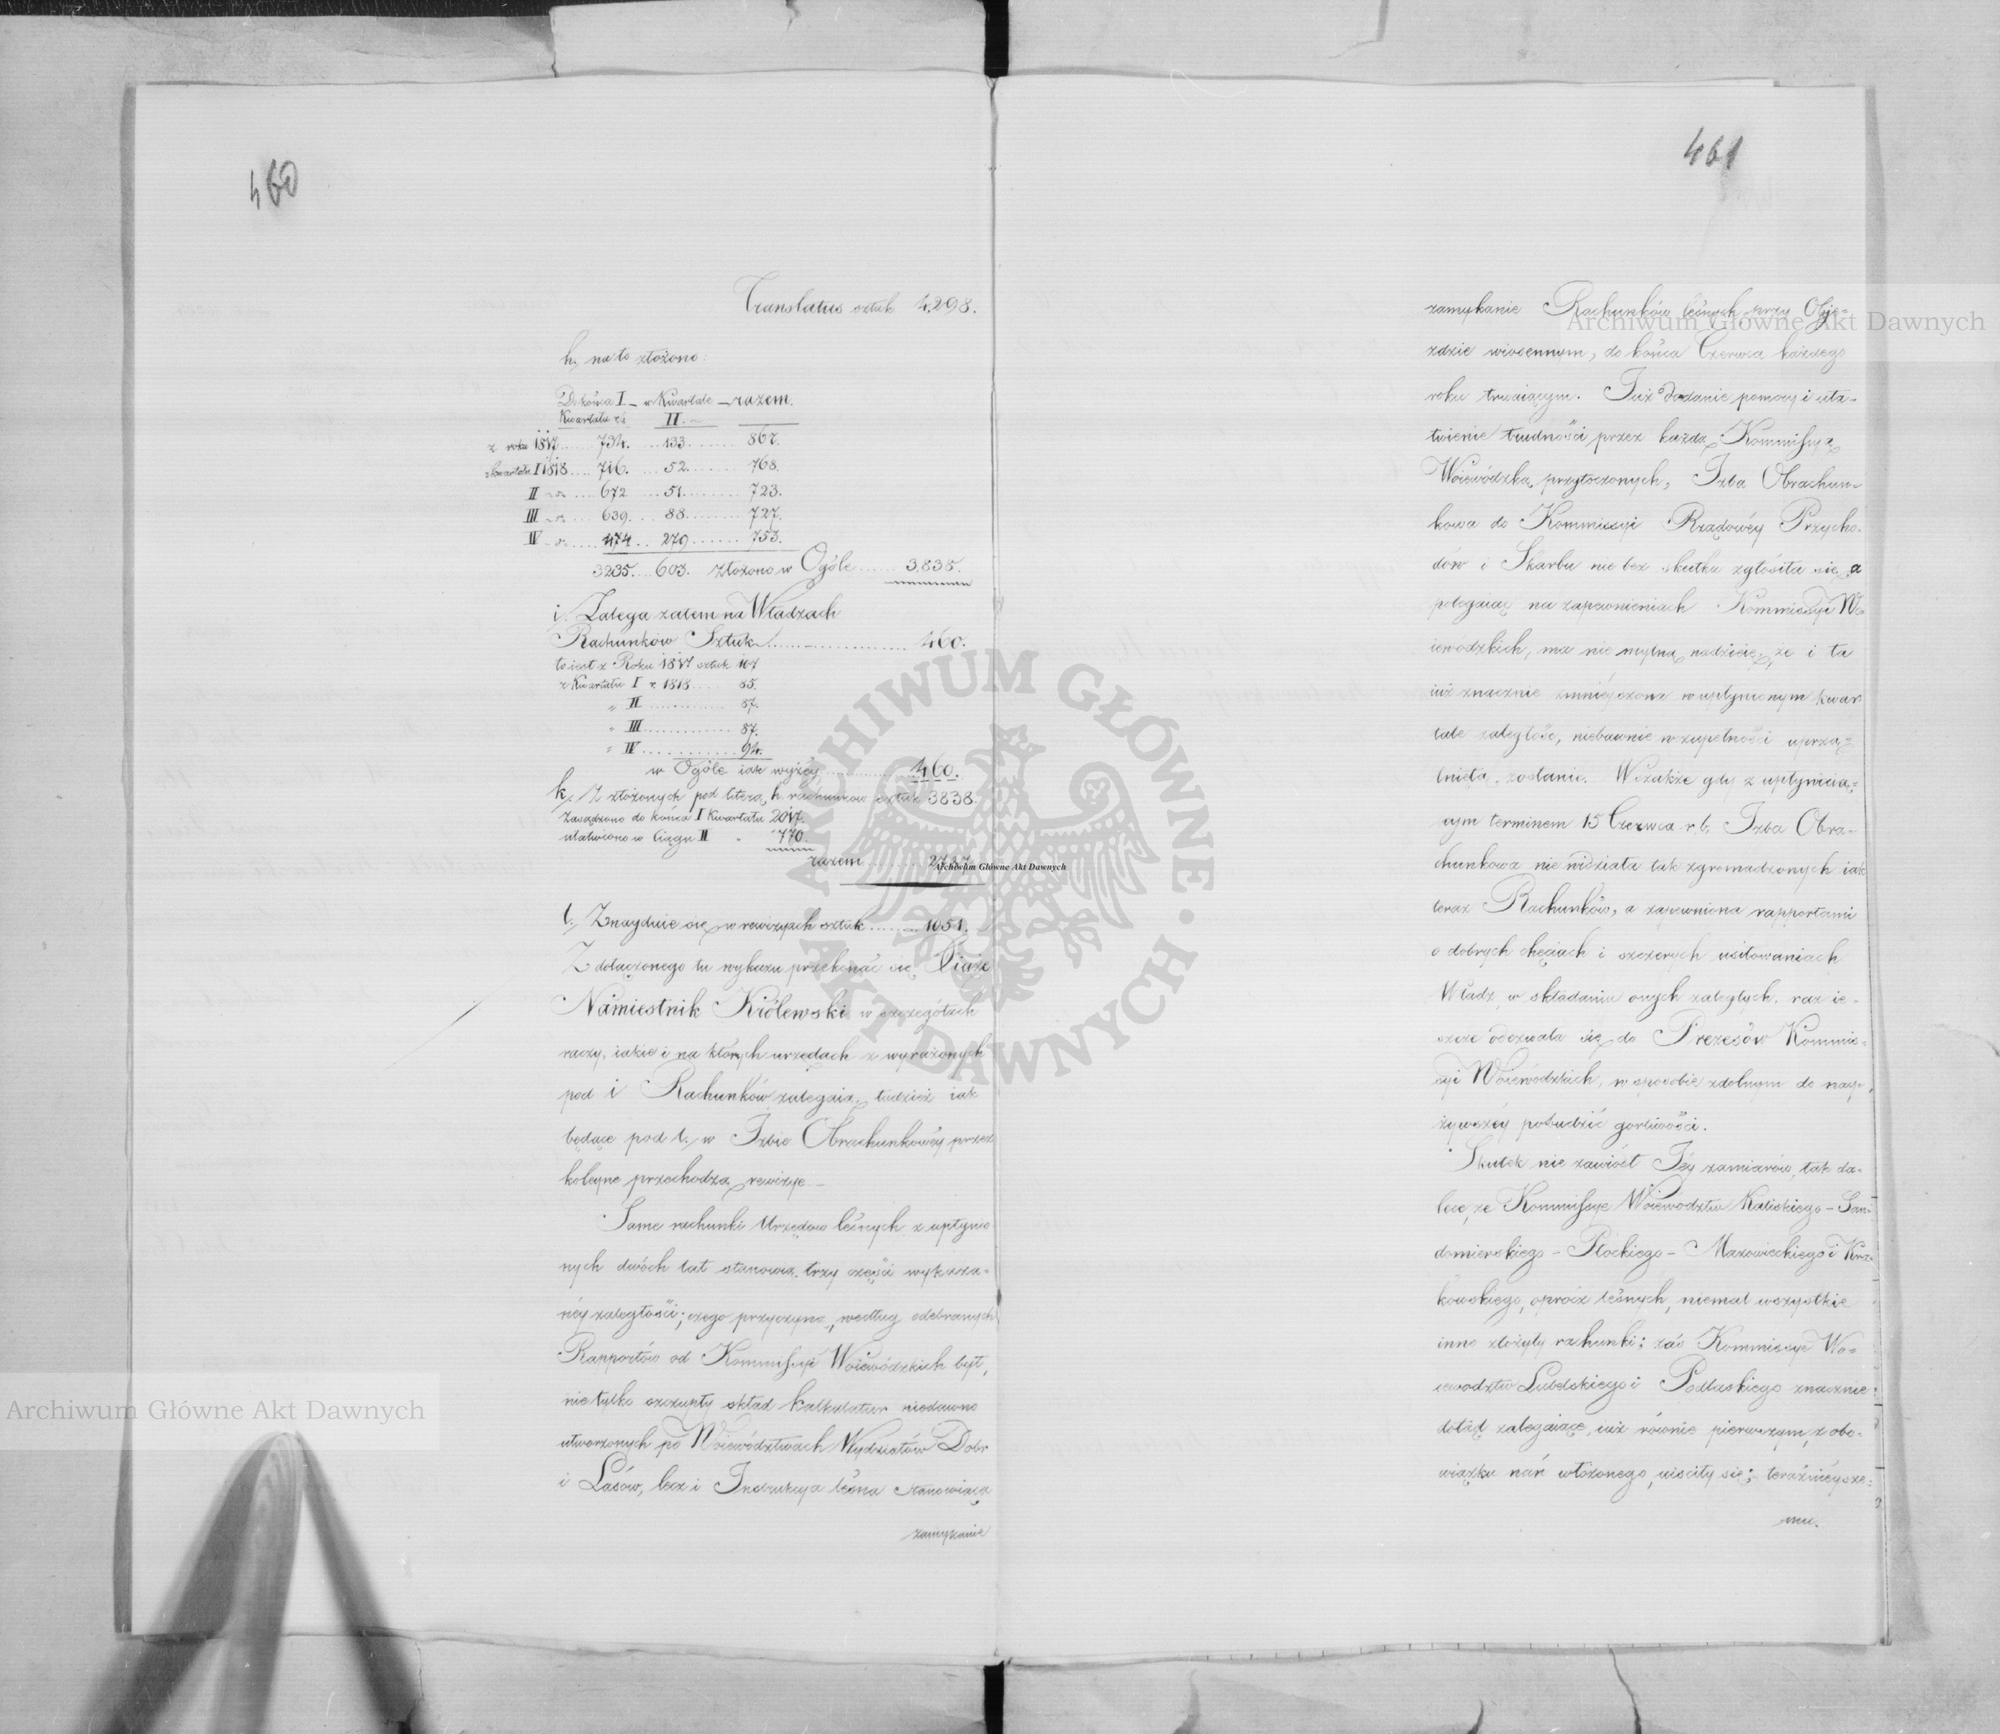 460
Translatus sztuk 4,298.
h, na to złożono:
Do końca I – w Kwartale – razem.
Kwartału r. b. II. –
z roku 1817 ..... 734. ... 133. ....... 867.
z kwartału I 1818 .... 716. ... 52. ....... 768.
II ..... 672 ... 51. ....... 723.
III ..... 639. ... 88. ....... 727.
IV ..... 474 .. 279 ....... 753.
3235. ... 603. złożono w Ogóle ...... 3,838.
i. Zalega zatem na Władzach
Rachunków Sztuk ..................... 460.
to iest z Roku 1817 sztuk 107
z Kwartału I r. 1818 ..... 85.
" II ............. 87.
" III ............. 87.
" IV ............. 94.
w Ogóle iak wyżéy ............... 460.
k. Z złożonych pod literą h. rachunków sztuk 3838.
Zasądzono do końca I Kwartału 2017.
ułatwiono w Ciągu II " 770.
razem ......... 2787
l. Znayduie się w rewizyach sztuk ....... 1051.
Z dołączonego tu wykazu przekonać się Xiąże
Namiestnik Królewski w szczegółach
raczy, iakie i na których urzędach z wyrażonych
pod i Rachunków zalegaią, tudzież iak
będące pod l. w Izbie Obrachunkowéy przez
koleyne przechodzą rewizye –
Same rachunki Urzędów leśnych z upłynio
nych dwóch lat stanowią trzy części wykaza-
néy zaległości; czego przyczyną, według odebranych
Rapportów od Kommissyi Woiewódzkich był,
nie tylko szczupły skład kalkulatur niedawno
utworzonych po Woiewództwach Wydziałów Dobr
i Lasów, lecz i Instrukcya leśna stanowiąca
zamykanie
461
zamykanie Rachunków leśnych przy Obje-
zdzie wiosennym, do końca Czerwca każdego
roku trwaiącym. Już dodanie pomocy i uła-
twienie trudności przez każdą Kommissyą
Woiewódzką przytoczonych, Izba Obrachun-
kowa do Kommissyi Rządowéy Przycho-
dów i Skarbu nie bez skutku zgłosiła się, a
polegaiąc na zapewnieniach Kommissyi Wo
iewódzkich, ma nie mylną nadzieię, że i ta
iuż znacznie zmnieyszona w upłynionym kwar
tale zaległość, niebawnie w zupełności uprzą-
tnięta zostanie. Wszakże gdy z upłynieią-
cym terminem 15 Czerwca r. b. Izba Obra-
chunkowa nie widziała tak zgromadzonych iak
teraz Rachunków, a zapewniona rapportami
o dobrych chęciach i szczerych usiłowaniach
Władz, w składaniu onych zaległych, raz ie-
szcze odezwała się do Prezesów Kommis-
syi Woiewódzkich, w sposobie zdolnym do nay-
żywszéy pobudzić gorliwości.
Skutek nie zawiódł Jéy zamiarów, tak da-
lece, że Kommissye Woiewodztw Kaliskiego – San-
domierskiego – Płockiego – Mazowieckiego i Kra-
kowskiego, oprócz leśnych, niemal wszystkie
inne złożyły rachunki; zaś Kommissye Wo-
iewodztw Lubelskiego i Podlaskiego znacznie
dotąd zalegaiące, iuż równie pierwszym, z obo-
wiązku nań włożonego, uiściły się; teraźnieysze-
mu.
Archiwum Główne Akt Dawnych
Archiwum Główne Akt Dawnych
Archiwum Główne Akt Dawnych
ARCHIWUM GŁÓWNE • AKT DAWNYCH •